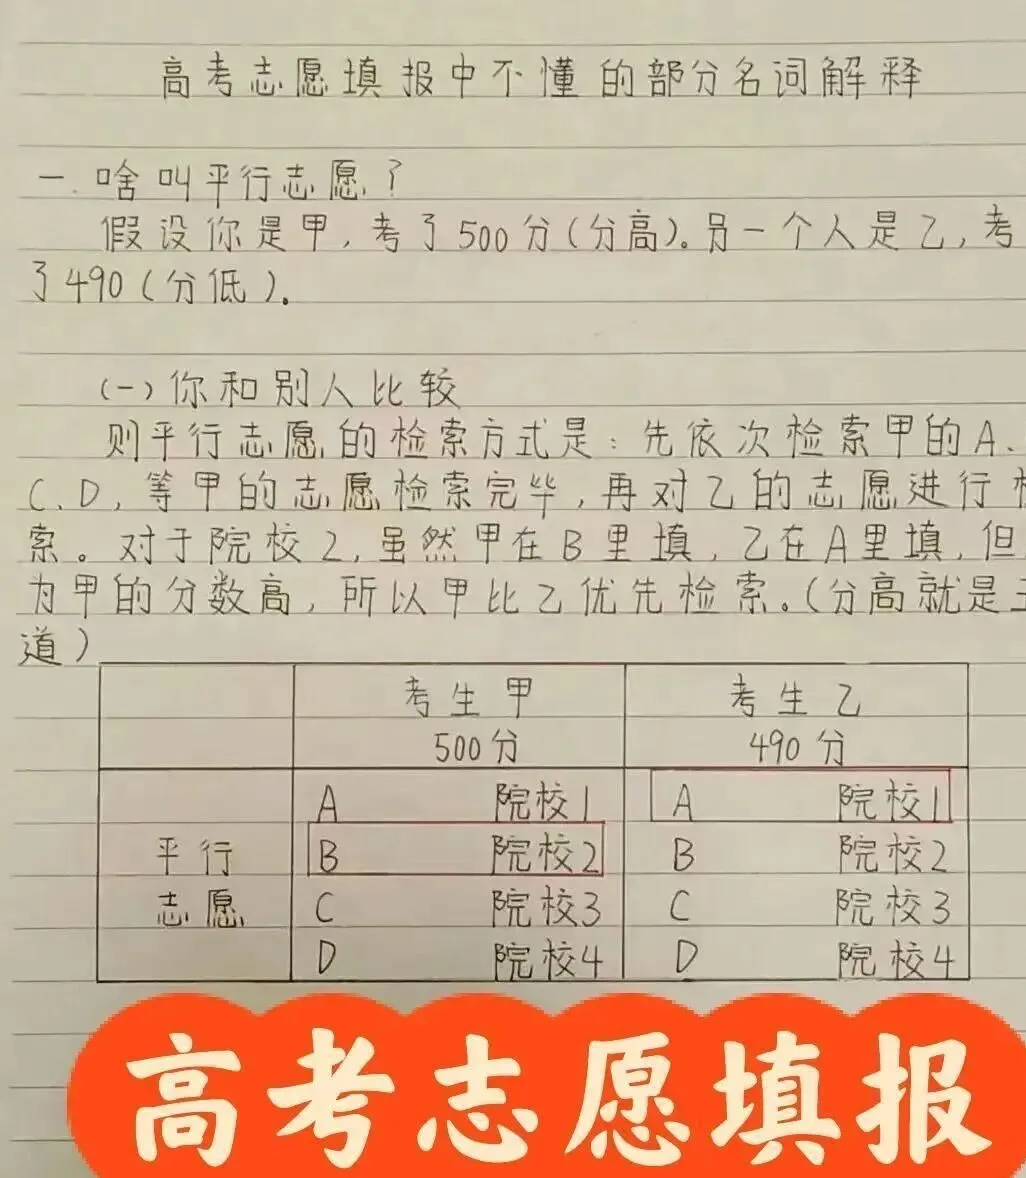 高考志愿填报中不懂的部分名词解释
一.啥叫平行志愿?
假设你是甲,考了500分(分高)。另一个人是乙,考
了490(分低)。
(一)你和别人比较
则平行志愿的检索方式是:先依次检索甲的A、
C、D,等甲的志愿检索完毕,再对乙的志愿进行
索。对于院校2,虽然甲在B里填,乙在A里填,但
为甲的分数高,所以甲比乙优先检索。(分高就是
道)
考生甲 考生乙
500分 490分
A 院校1 A 院校1
平行 B 院校2 B 院校2
志愿 C 院校3 C 院校3
D 院校4 D 院校4
高考志愿填报